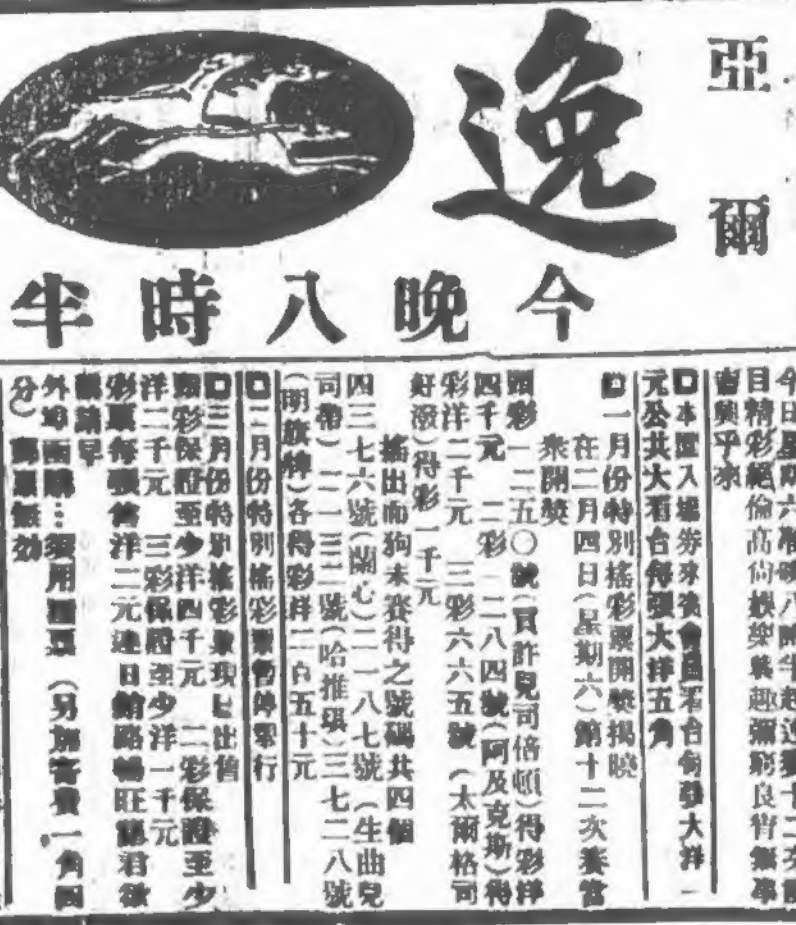 亞爾
逸
今晚八時半
今日星期六准晚八時半起逸賽十二次
目精彩絕倫高尚娛樂興趣彌窮良宵無事
盍興乎來
□本園入場券來賓會員看台每張大洋一
元公共大看台每張大洋五角
□一月份特別搖彩票開獎揭曉
在二月四日(星期六)第十二次賽當
衆開獎
頭彩一二五〇號(買許兒司倍頓)得彩洋
四千元 二彩一二八四號(阿及克斯)得
彩洋二千元 三彩六六五號(太爾格司
好潑)得彩一千元
搖出而狗未賽得之號碼共四個
四三七六號(蘭心)二一八七號(生曲兒
司帶)二一三二號(哈推琪)三七二八號
(明旗牌)各得彩洋二百五十元
□二月份特別搖彩票暫停舉行
□三月份特別搖彩票現已出售
頭彩保證至少洋四千元 二彩保證至少
洋二千元 三彩保證至少洋一千元
彩票每張售洋二元連日銷路暢旺諸君欲
購請早
外埠函購⋯須用匯票(另加寄費一角四
分)郵票無効